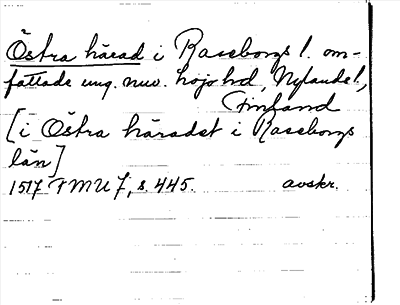 Östra härad i Raseborgs l. om-
fattade ung. nuv. Lojo hd, Nylands l.,
Finland
[i Östra häradet i Raseborgs
län]
1517 FMU 7, s. 445. avskr.